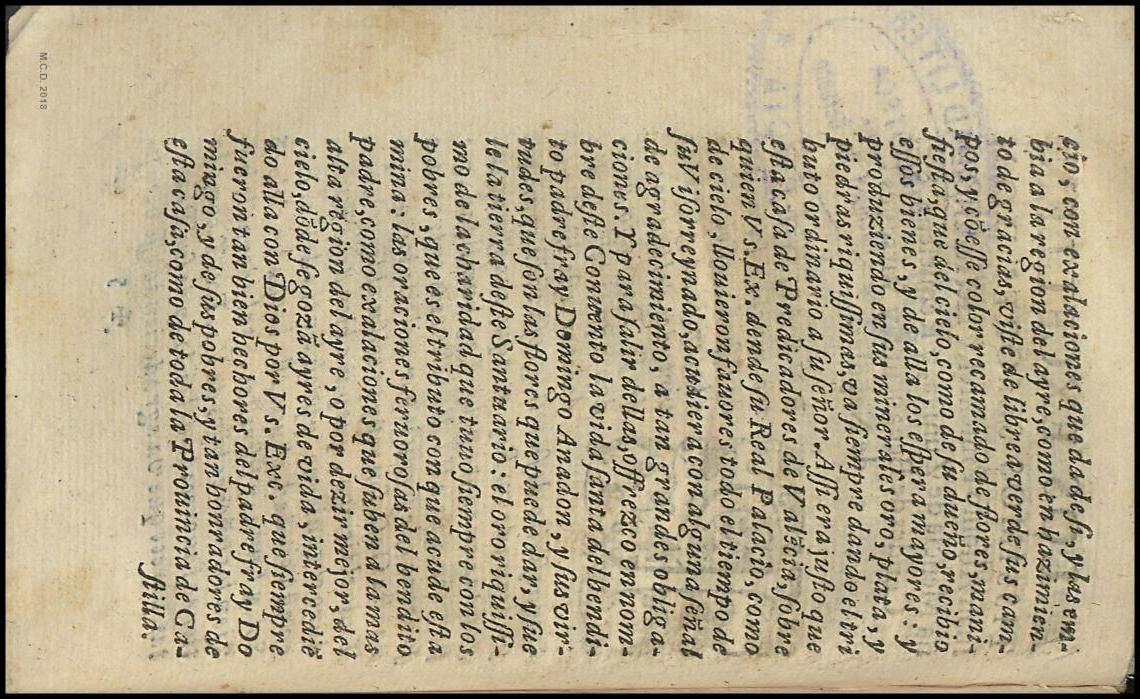 cio, con exalaciones que da de si, y las em-
bia a la region del ayre, como en hazimien-
to de gracias, viste de librea verde sus cam-
pos, y cõ esse color recamado de flores, mani-
fiesta, que del cielo, como de su dueño, recibio
essos bienes, y de alla los espera mayores: y
produziendo en sus minerales oro, plata, y
piedras riquissimas, va siempre dando el tri
buto ordinario a su señor. Assi era justo que
esta casa de Predicadores de Valẽcia, sobre
quien Vs. Ex. dende su Real Palacio, como
de cielo, llouieron fauores todo el tiempo de
su Visorreynado, acudiera con alguna señal
de agradecimiento, a tan grandes obliga-
ciones. Y para salir dellas, offrezco en nom-
bre deste Conuento la vida santa del bendi-
to padre fray Domingo Anadon, y sus vir-
tudes, que son las flores que puede dar, y sue
le la tierra deste Santuario: el oro riquissi-
mo de la charidad que tuuo siempre con los
pobres, que es el tributo con que acude esta
mina: las oraciones feruorosas del bendito
padre, como exalaciones que suben a la mas
alta region del ayre, o por dezir mejor, del
cielo, dõde se gozã ayres de vida, intercediẽ
do alla con Dios por Vs. Exc. que siempre
fueron tan bien hechores del padre fray Do
mingo, y de sus pobres, y tan honradores de
esta casa, como de toda la Prouincia de Ca-
stilla.
M.C.D. 2018